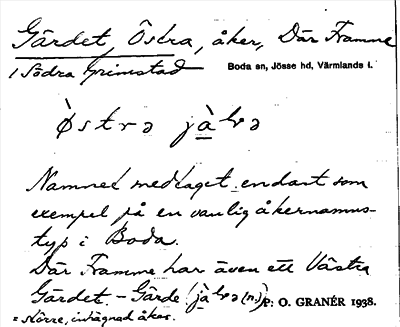 Gärdet, Östra, åker, Där Framme
i Södra Grimstad Boda sn, Jösse hd, Värmlands l.
Namnet medtaget endast som
exempel på en vanlig åkernamns-
typ i Boda.
Där Framme har även ett Västra
Gärdet. – Gärde (n.), P: O. GRANÉR 1938.
= större, inhägnad åker.